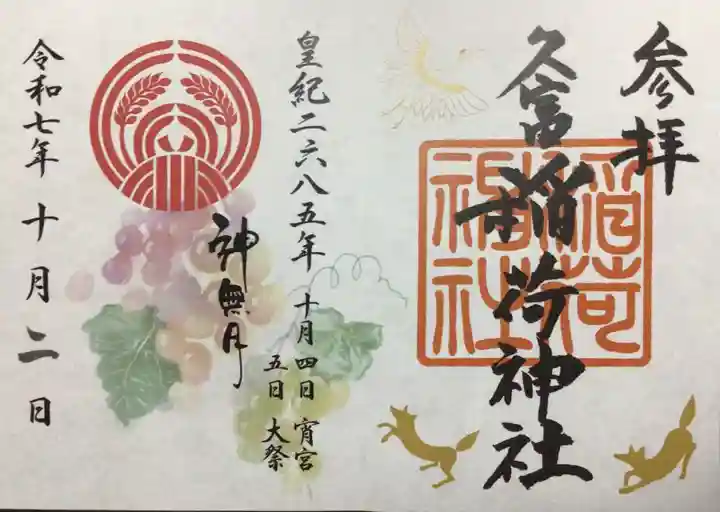 参拝
久富稲荷神社
稲荷
神社
皇紀二六八五年 十月四日 宵宮
五日 大祭
神無月
令和七年 十月二日